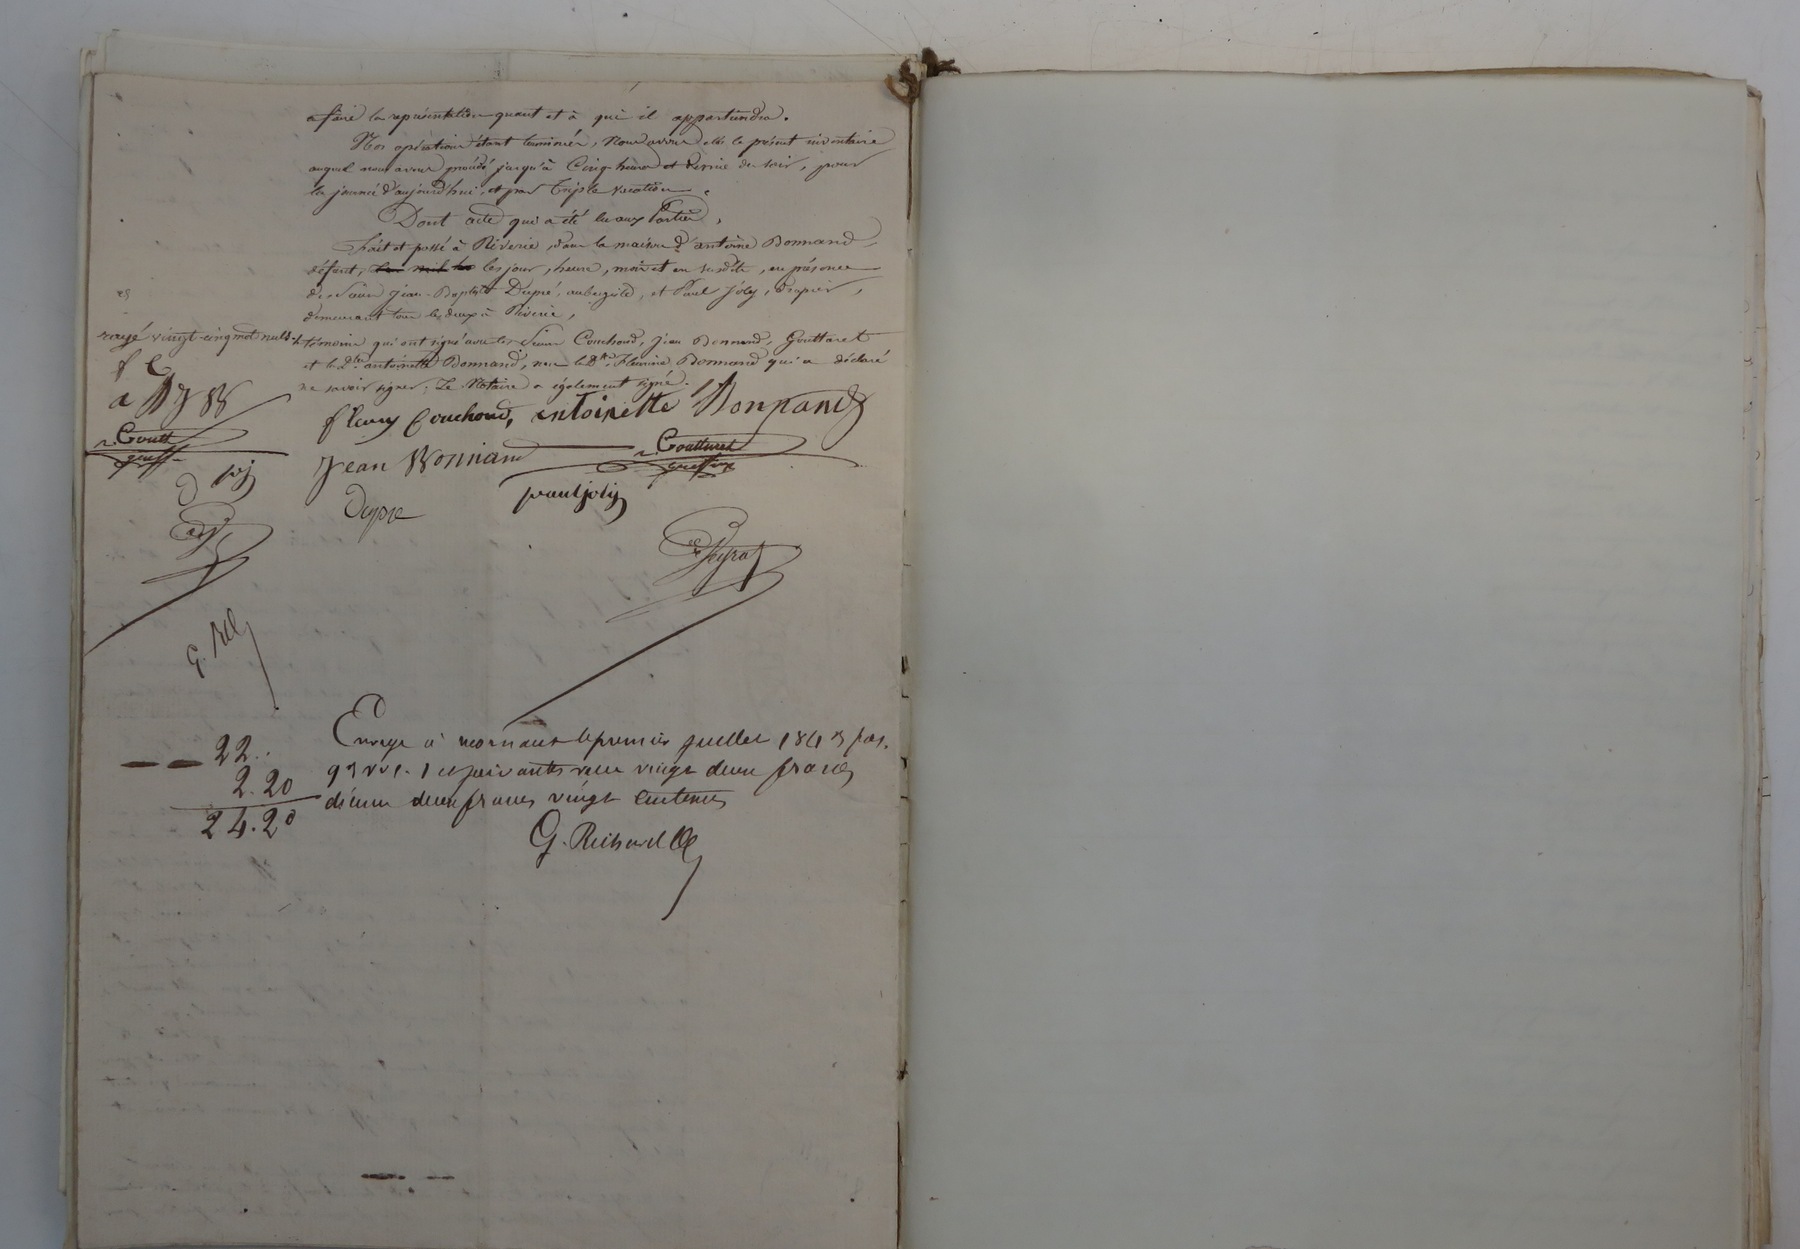 a faire la représentation quant et à qui il appartiendra.
Nos opérations étant terminées, Nous avons clos le présent inventaire
auquel nous avons procédé jusqu'à Cinq heures et demie du soir, pour
la journée d'aujourd'hui, et par triple vacation.
Dont acte qui a été lu aux Parties,
Fait et passé à Riverie, dans la maison d'antoine Bonnand,
défunt, les jour, heure, mois et an susdits, en présence
de Sieurs Jean-Baptiste Dupré, aubergiste, et Paul Joly,
demeurant tous les deux à Riverie,
témoins qui ont signé avec les Sieurs Couchoud, Jean Bonnand, Gouttaret
et la Dlle antoinette Bonnand, non la Dlle Fleurine Bonnand qui a déclaré
ne savoir signer. Le Notaire a également signé.
rayé vingt-cinq mot nuls
f C
a B J B
Goutt
pj
D
fleury Couchoud, antoinette Bonnand
Jean Bonnand
Gouttaret
paul joly
Dupre
Peyrat
G. Rd
Enregé à mornant le premier juillet 1843 fol.
et suivants reçu vingt deux francs
décime deux francs vingt centimes
22.
2.20
24.20
G. Richard